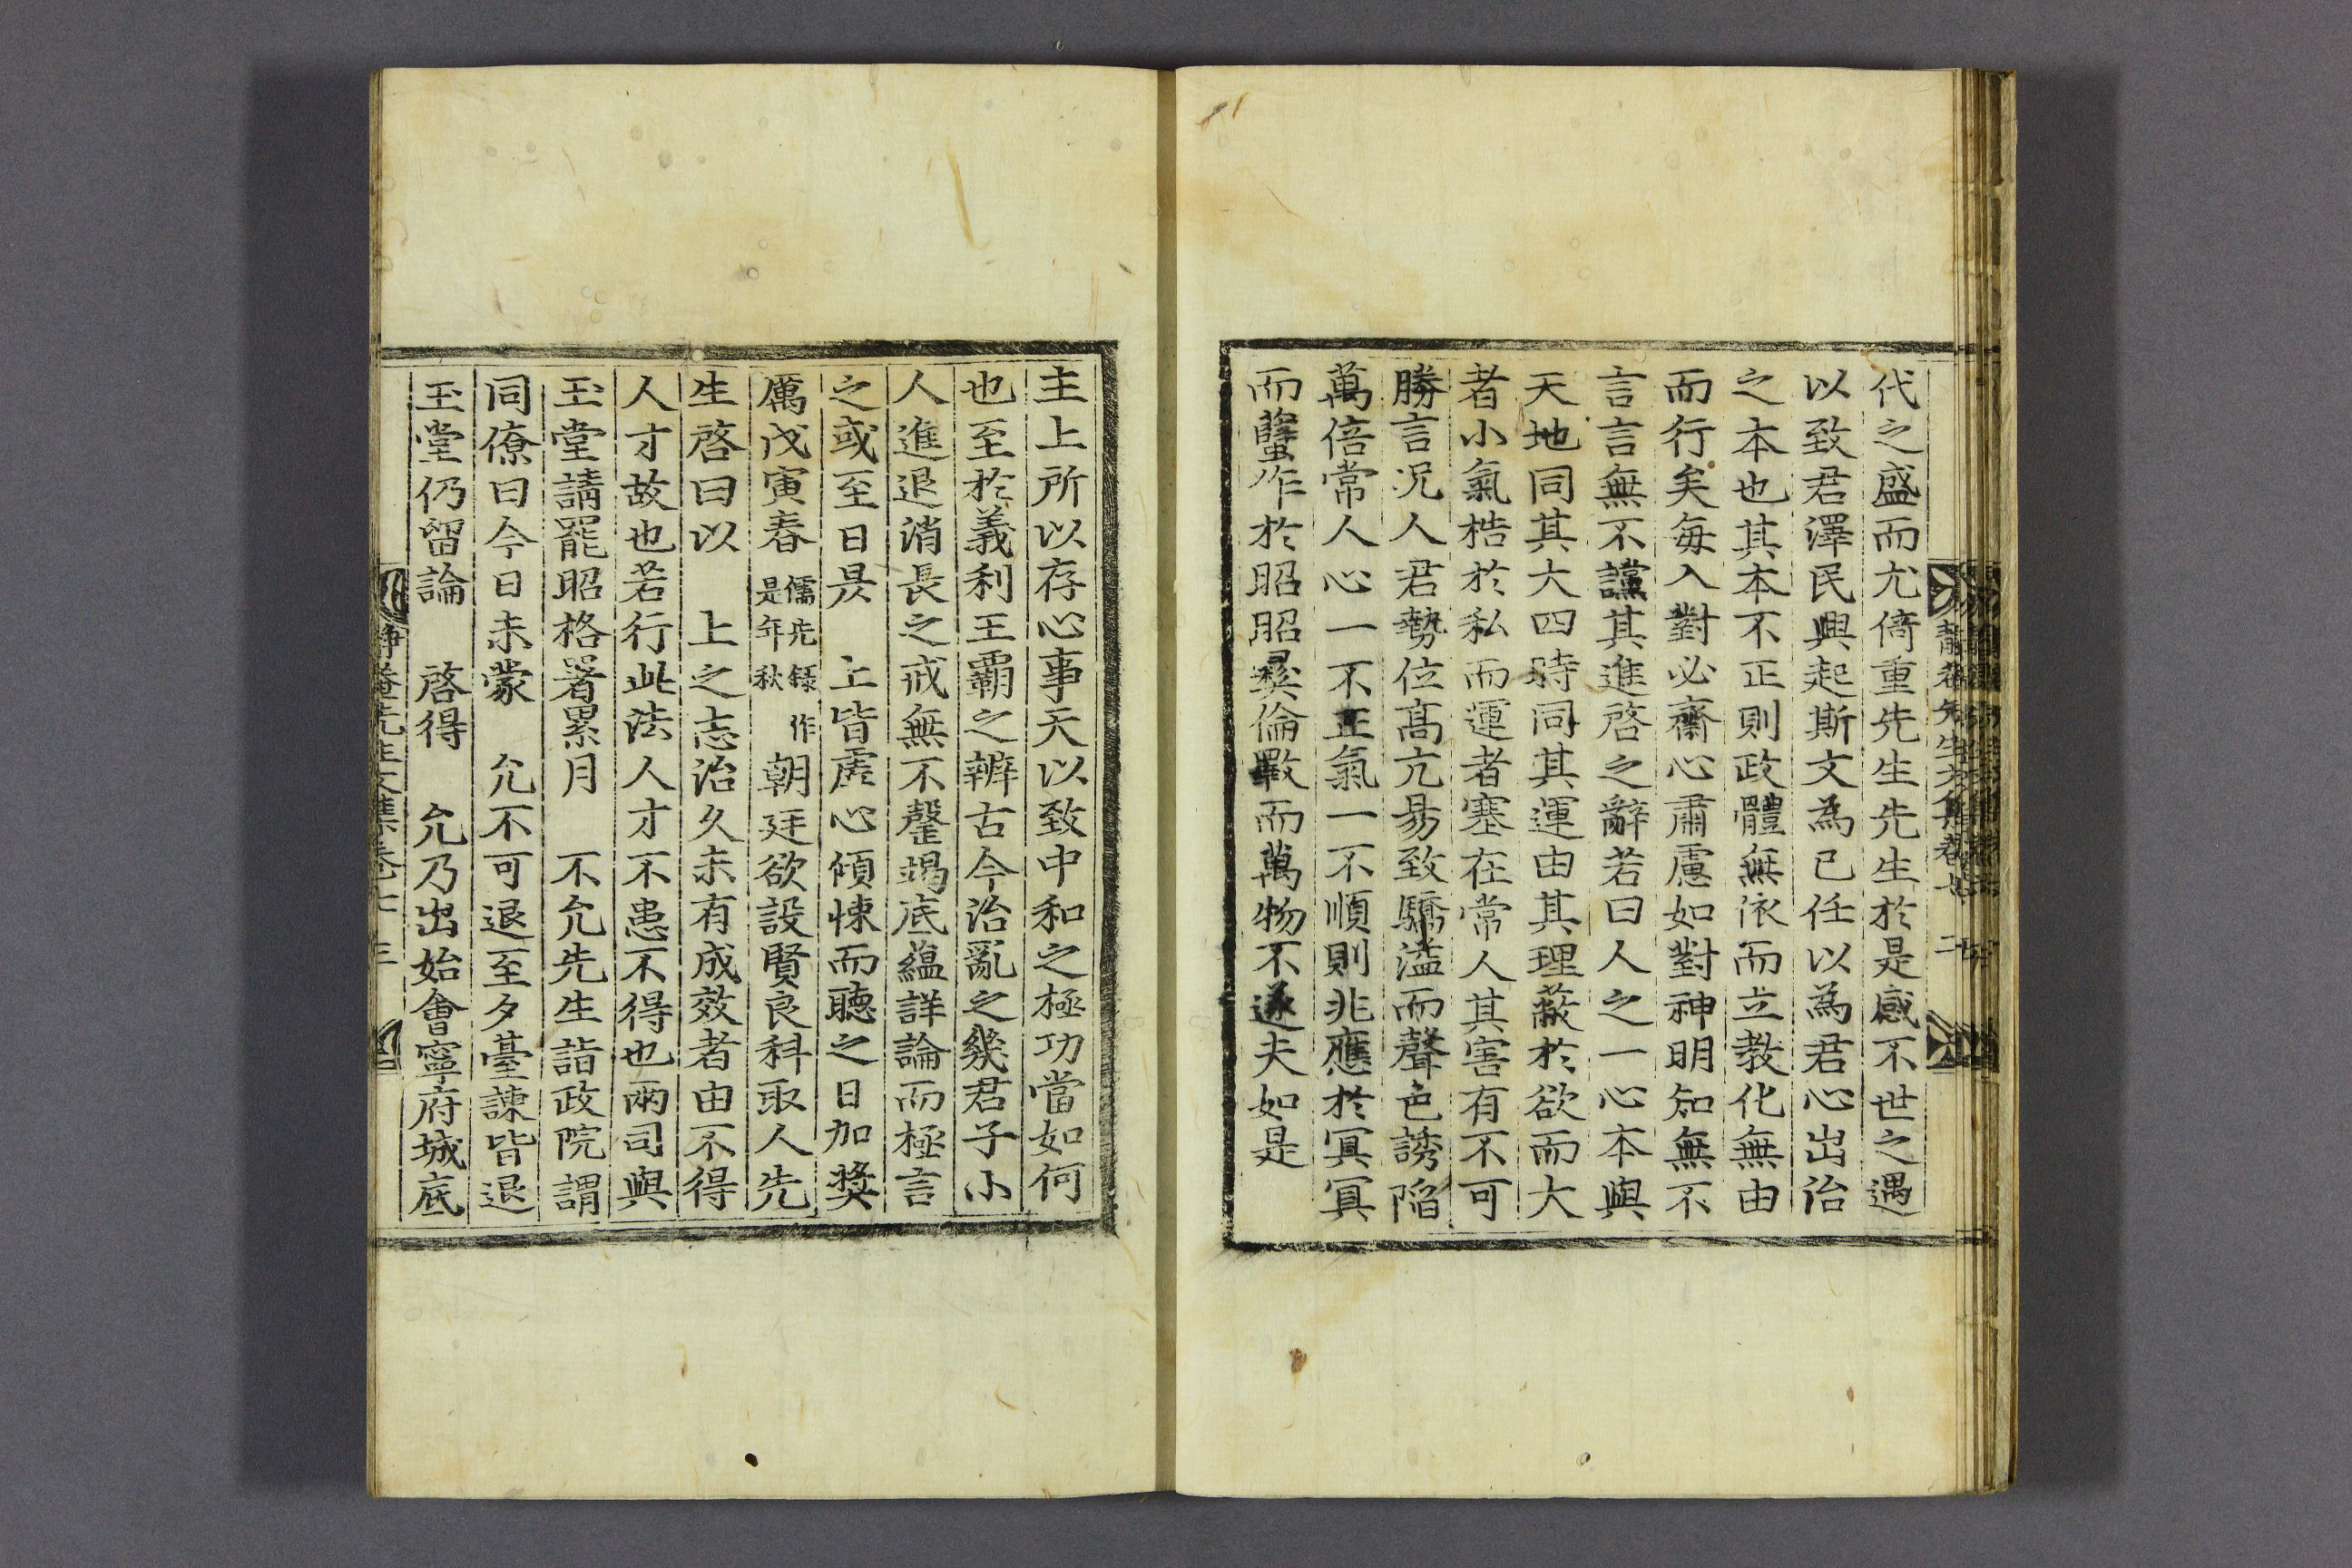 代之盛而尤倚重先生先生於是感不世之遇
以致君澤民興起斯文為己任以為君心出治
之本也其本不正則政體無依而立教化無由
而行矣每入對必齋心肅慮如對神明知無不
言言無不讜其進啓之辭若曰人之一心本與
天地同其大四時同其運由其理蔽於欲而大
者小氣梏於私而運者塞在常人其害有不可
勝言況人君勢位高亢易致驕溢而聲色誘陷
萬倍常人心一不正氣一不順則兆應於冥冥
而孽作於昭昭彛倫斁而萬物不遂夫如是
主上所以存心事天以致中和之極功當如何
也至於義利王覇之辨古今治亂之幾君子小
人進退消長之戒無不罄竭底蘊詳論而極言
之或至日昃　上皆虛心傾悚而聽之日加奬
厲戊寅春儒先録作是年秋朝廷欲設賢良科取人先
生啓曰以　上之志治久未有成效者由不得
人才故也若行此法人才不患不得也兩司與
玉堂請罷昭格署累月　不允先生詣政院謂
同僚曰今日未蒙　允不可退至夕臺諫皆退
玉堂仍留論　啓得　允乃出始會寧府城底
靜菴先生文集卷七 三